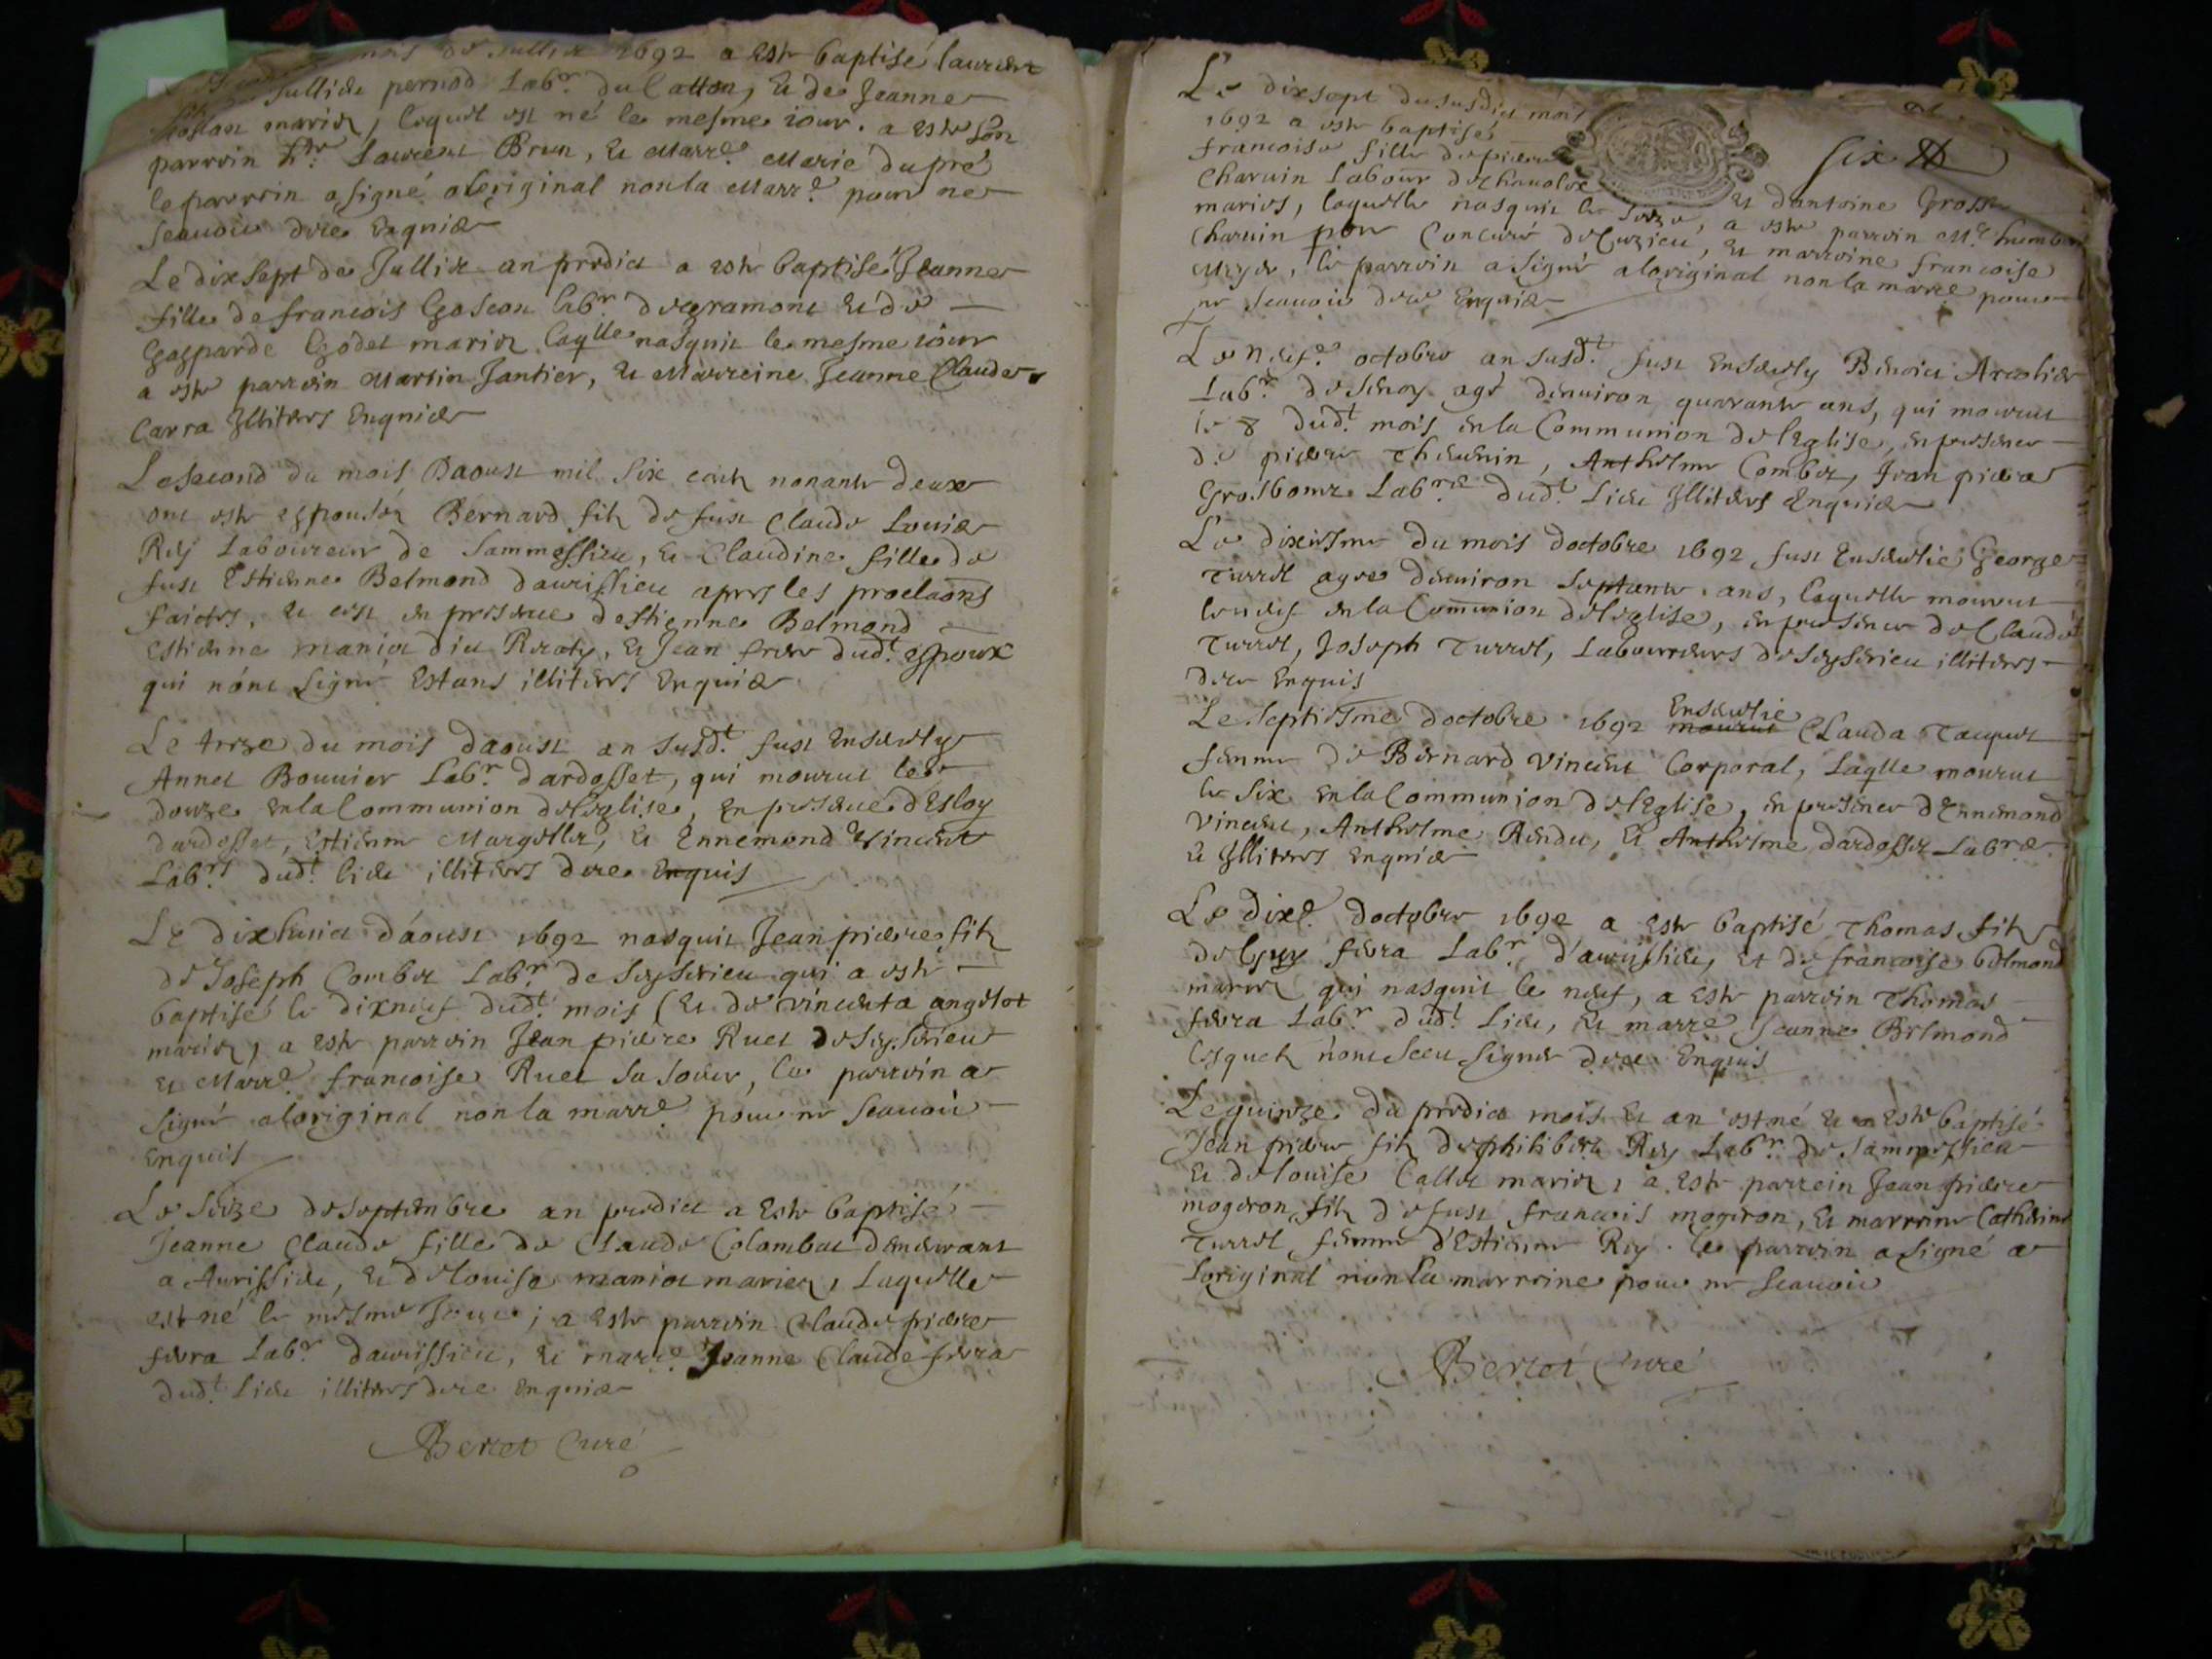 mois de Julliet 1692 a este baptisé laurent
Jullien pernod Labr. du Catton, et de Jeanne
mariez, lequel est né le mesme iour. a esté son
parrein Laurent Brun, et Marre. Marie dupré
le parrein a signé aloriginal non la Marre. pour ne
scauoir dire Enquise
Le dixsept de Julliet an prédict a esté baptisé Jeanne
fille de francois Goston labr. de gramont et de
Gasparde Godet mariez laqlle nasquit le mesme iour
a esté parrein Martin Jantier, et Marreine Jeanne Claude
Carra Illiteres Enquise
Le second du mois Daoust mil six cents nonante deux
ont esté espousez Bernard filz de fust Claude Louis
Rey Laboureur de Sammessieu, et Claudine fille de
fust Estienne Belmond daurissieu apres les proclaons
faictes, et cest en presence destienne Belmond
Estienne maniez dict Rozaty, et Jean frere dudt. espoux
qui nont signé Estans illiteres Enquise
Le treze du mois daoust an susdt. fust Ensevely
Annet Bouuier Labr. dardosset, qui mourut le
douze en la Communion de leglise, en presence d'Esloy
dardosset, Estienne Margottet, et Ennemond Vincent
Labrs. dudt. lieu illiteres dire Enquis
Le dixhuict d'aoust 1692 nasquit Jean pierre filz
de Joseph Combet Labr. de Seyserieu qui a esté
baptisé le dixneuf dudt. mois (et de vincenta angelot
mariez, a esté parrein Jean pierre Ruet de Seyserieu
et Marre. francoise Ruet sa soeur, le parrein a
signé aloriginal non la marre. pour ne scauoir
Enquis
Le seize de septembre an predict a esté baptisé
Jeanne Claude fille de Claude Colombat demeurant
a Aurissieu, et de louise maniez mariez, laquelle
est né le mesme Jour; a esté parrein Claude pierre
fevra Labr. daurissieu, et marre. Jeanne Claude fevra
dudt. lieu illiteres dire Enquise
Bertet Curé
Le dixsept du susdict mois
1692 a esté baptisé
francoise fille de pierre
Charuin Labour
mariez, laquelle nasquit le seize, et dantoine Gross
Charuin pbre Concuré de Cuzieu, a esté parrein Mre. humbe
Meyer, le parrein a signé aloriginal et marreine francoise
non la marre pour
ne scauoir dire Enquise
six
Le neufe. octobre an susdt. fust Enseuely Benoict
Labr. de agé denuiron quarante ans, qui mourut
le 8 dudt. mois en la Communion de leglise, en presence
de pierre Theuenin, Anthelme Combet, Jean pierre
Grosbome Labre. dudt. lieu Illiteres Enquise
Le dixiesme du mois doctobre 1692 fust Enseuelie George
Turrel agée denuiron septante ans, laquelle mourut
le neuf en la Communion de leglise, en presence de Claude
Turrel, Joseph Turrel, Laboureurs de Seyserieu illiteres
dire Enquis
Le septiesme doctobre 1692 mourut Enseuelie Clauda Tacquet
femme de Bernard Vincent Corporal, laqlle mourut
le six en la Communion de leglise, en presence dEnnemond
Vincent, Anthelme Rendu, et Anthelme dardosset Labre.
et Illiteres Enquise
Le dixe. doctobre 1692 a esté baptisé Thomas filz
de Guy fevra Labr. d'aurissieu, et de francoise belmond
mariez qui nasquit le neuf, a esté parrein Thomas
fevra Labr. dudt. lieu, et marre. Jeanne Belmond
lesquels nont sceu signer dire Enquis
Le quinze du predict mois et an est né et a esté baptisé
Jean pierre filz de philibert Rey Labr. de Sammessieu
et de louise Callet mariez, a esté parrein Jean pierre
mogeron filz de fust francois mogeron, et marreine Catherine
Turrel femme d'Estienne Rey. le parrein a signé a
loriginal non la marreine pour ne scauoir
Bertet Curé